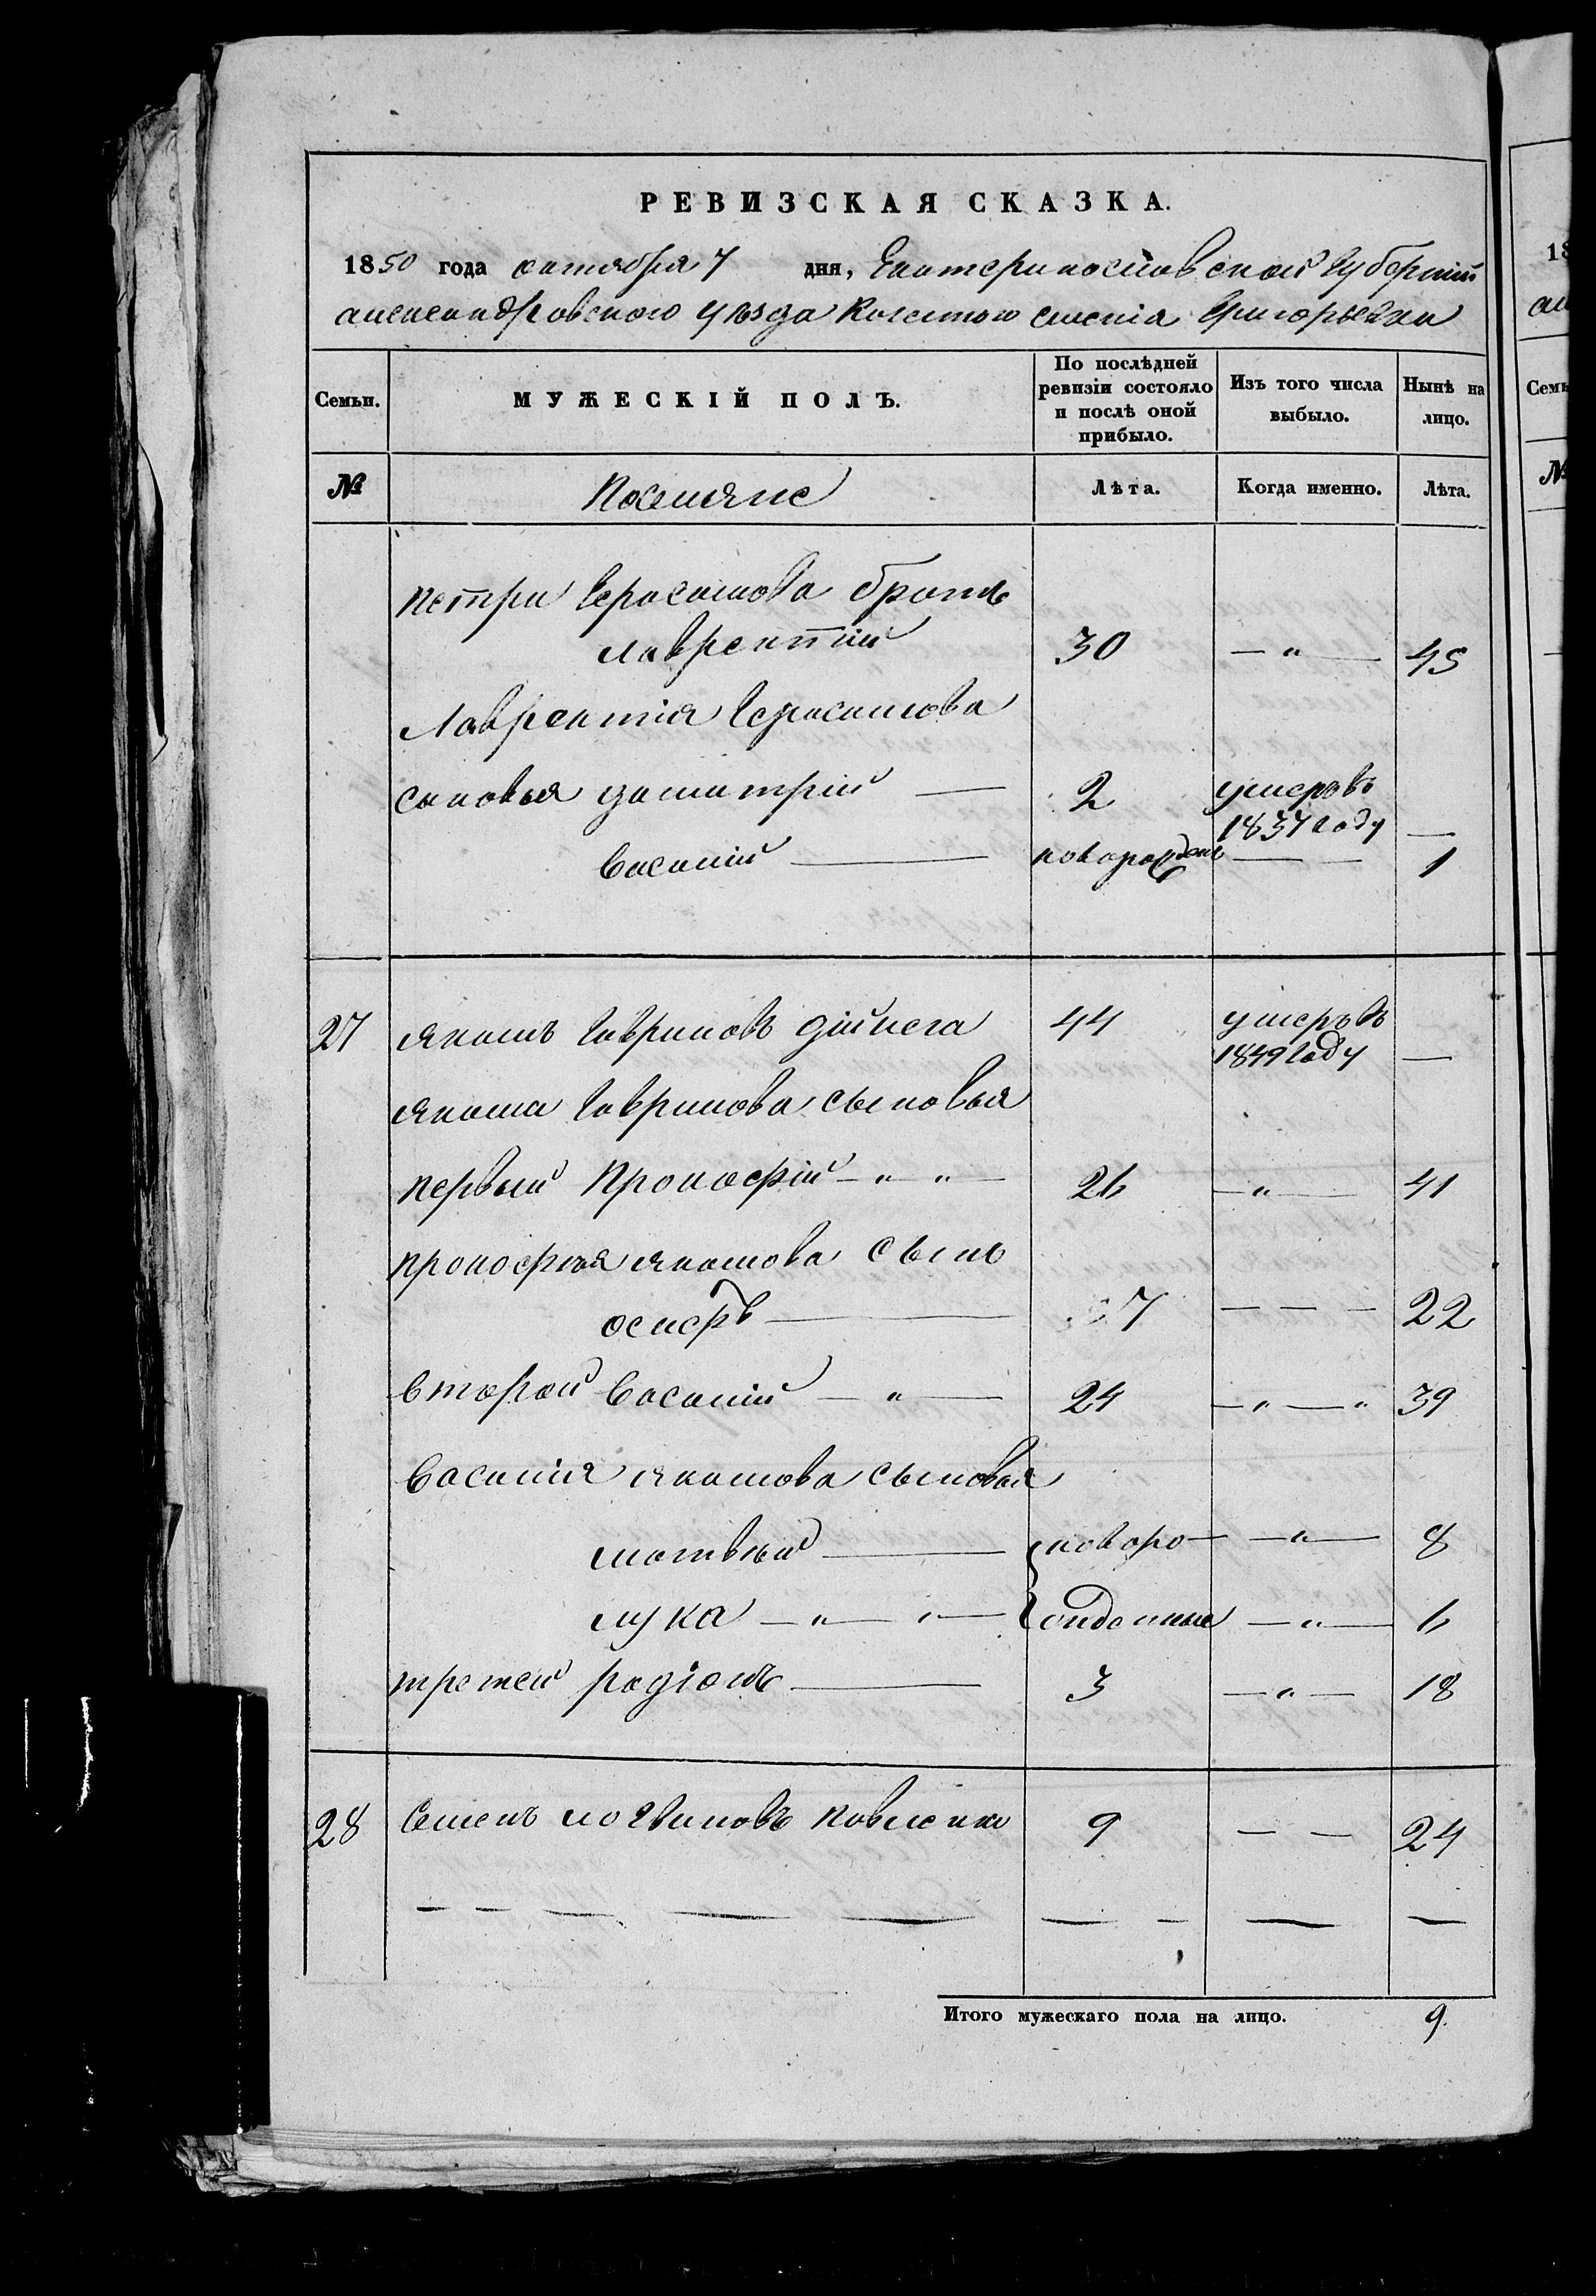 РЕВИЗСКАЯ СКАЗКА.
1850 года октября 7 дня, Екатеринославской губернии
александровского уезда Козенного селенія Григорьевки
Семьи.
МУЖЕСКІЙ ПОЛЪ.
По послѣдней ревизіи состояло и послѣ оной прибыло.
Изъ того числа выбыло.
Нынѣ на лицо.
№
Поселяне
Лѣта.
Когда именно.
Лѣта.
петра Герасимова братъ
лаврентій 30 — " — 45
Лаврентія Герасимова
сыновья диматрій — 2 умеръ въ 1837 году —
Василій — новорожден — — 1
27 якимъ Гавриловъ 44 умеръ въ 1849 году —
якима Гаврилова сыновья
первый Прокофій — " — " — 26 — " — 41
прокофия якимова сынъ
осифъ — 7 — — — 22
второй Василій — " — 24 — " — " 39
Василія якимова сыновья
матвей — новоро — " — 8
лука — " — " — жденные — " — 6
третей родіонъ — 3 — " — 18
28 Семенъ логвиновъ Павленко 9 — — 24
Итого мужескаго пола на лицо. 9.
18
Семьи
№